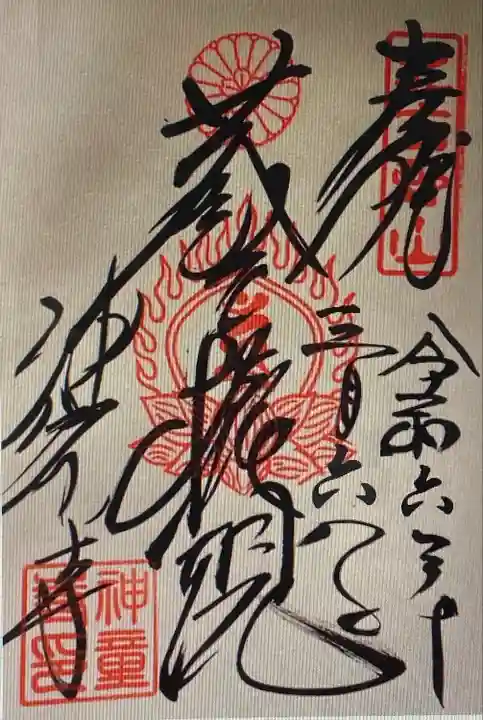 奉拝
令和六年
三月六日
蔵王権現
神童寺
神童
寺印